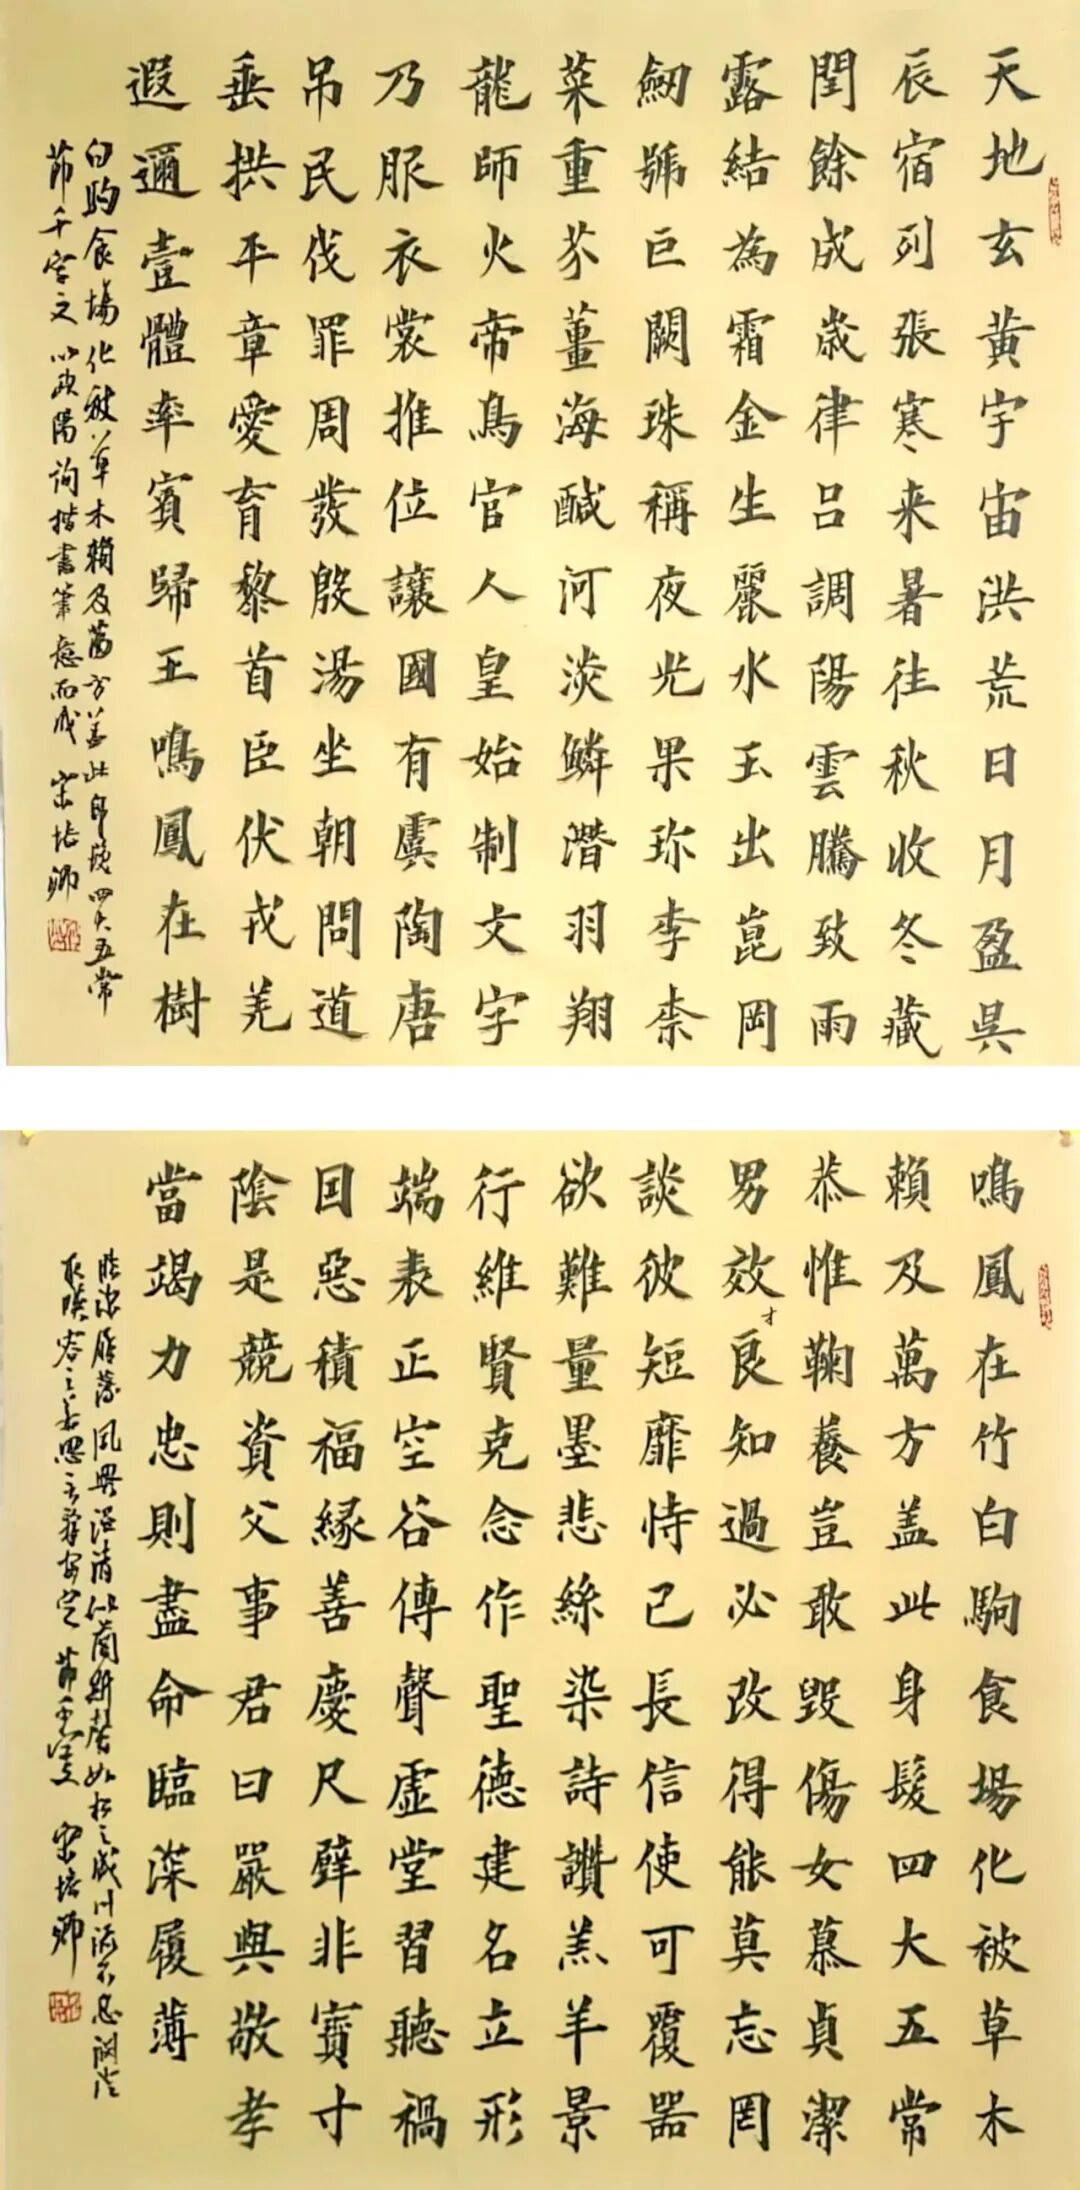 天地玄黃宇宙洪荒日月盈昃
辰宿列張寒来暑往秋收冬藏
閏餘成歲律呂調陽雲騰致雨
露結為霜金生麗水玉出崑岡
劒號巨闕珠稱夜光果珎李柰
菜重芥薑海鹹河淡鱗潛羽翔
龍師火帝鳥官人皇始制文字
乃服衣裳推位讓國有虞陶唐
吊民伐罪周發殷湯坐朝問道
垂拱平章愛育黎首臣伏戎羌
遐邇壹體率賓歸王鳴鳳在樹
白駒食場化被草木賴及萬方蓋此身髮四大五常
節千字文以欧陽詢楷書筆意而成 宋培卿
鳴鳳在竹白駒食場化被草木
賴及萬方盖此身髮四大五常
恭惟鞠養豈敢毀傷女慕貞潔
男效才良知過必改得能莫忘罔
談彼短靡恃己長信使可覆器
欲難量墨悲絲染詩讚羔羊景
行維賢克念作聖德建名立形
端表正空谷傳聲虛堂習聽禍
因惡積福緣善慶尺璧非寶寸
陰是競資父事君曰嚴與敬孝
當竭力忠則盡命臨深履薄
臨深履薄夙興温凊似蘭斯馨如松之盛川流不息淵澄
取暎容止若思言辭安定 節千字文 宋培卿